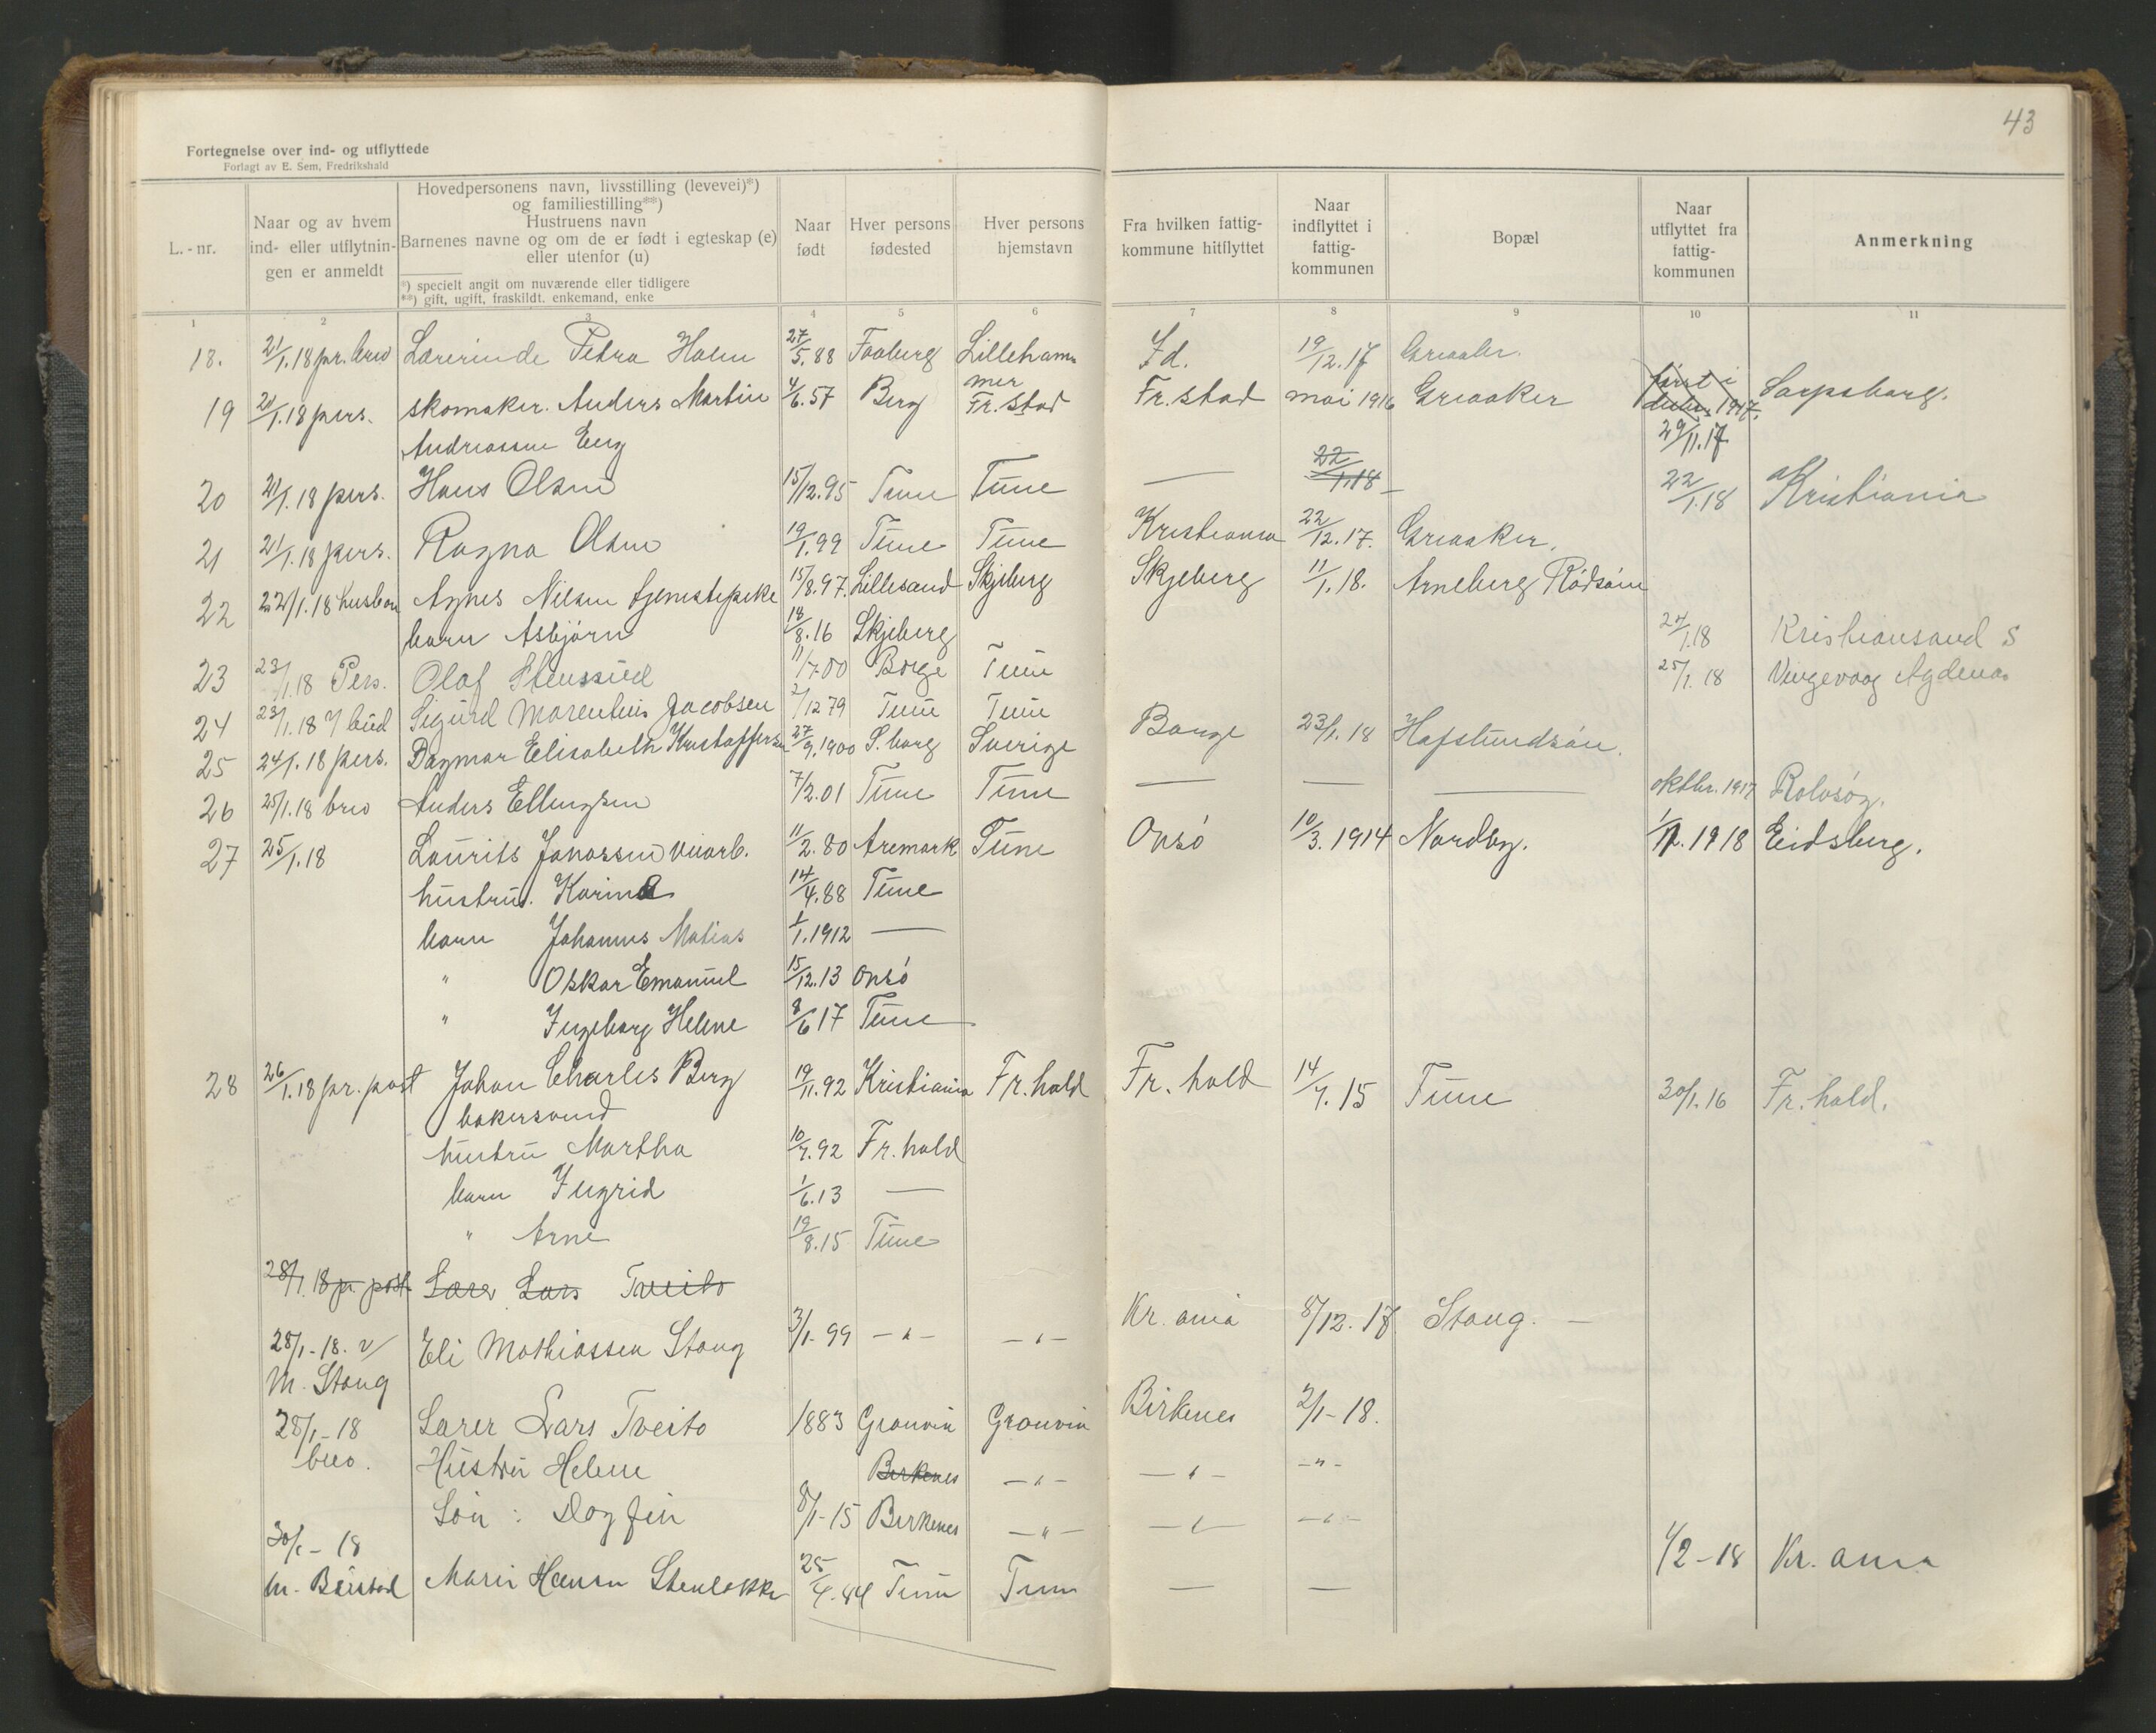 43
Fortegnelse over ind- og utflyttede
Forlagt av E. Sem, Fredrikshald
L.-nr.
Naar og av hvem ind- eller utflytningen er anmeldt
Hovedpersonens navn, livsstilling (levevei)*)
og familiestilling**)
Hustruens navn
Barnenes navne og om de er født i egteskap (e)
eller utenfor (u)
*) specielt angit om nuværende eller tidligere
**) gift, ugift, fraskildt. enkemand, enke
Naar født
Hver persons fødested
Hver persons hjemstavn
Fra hvilken fattigkommune hitflyttet
Naar indflyttet i fattigkommunen
Bopæl
Naar utflyttet fra fattigkommunen
Anmerkning
1 2 3 4 5 6 7 8 9 10 11
18. 21/1.18 pr. brev Lærerinde Petra Holm 27/5.88 Faaberg Lillehammer Id. 19/12.17 Greaaker.
19 21/1.18 pers. skomaker. Anders Martin 4/6.57 Berg Fr.stad Fr.stad mai 1916 Greaaker først i decbr. 1917. Sarpsborg.
Andreassen Eng 29/11.17
20 21/1.18 pers. Hans Olsen 15/12.95 Tune Tune — 22/1.18 — 22/1.18 Kristiania
21 21/1.18 pers. Ragna Olsen 19/1.99 Tune Tune Kristiania 22/12.17. Greaaker.
22 22/1.18 husbon Agnes Nilsen tjenestepike 15/8.97. Lillesand Skjeberg Skjeberg 11/1.18. Arneberg Rødsøen
barn Asbjørn 18/8.16 Skjeberg
23 23/1.18 Pers. Olaf Stensrud 11/7.00 Borge Tune 24/1.18 Kristiansand S
24 23/1.18 v/ bud Sigurd Marentius Jacobsen 2/12 79 Tune Tune 25/1.18 Vingevaag Agdenes
25 24/1.18 pers. Dagmar Elisabeth Kristoffersen 27/9.1900 S.borg Sverige Borge 23/1.18 Hafslundsøen.
26 25/1.18 brev Anders Ellingsen 7/2.01 Tune Tune — — — oktbr. 1917 Rolvsøy.
27 25/1.18 Laurits Johansen 11/2.80 Aremark Tune Onsø 10/3.1914 Nordby. 1/1.1918 Eidsberg.
hustru. Karine 14/4.88 Tune
barn Johannes Matias 1/1.1912 —
" Oskar Emanuel 15/12.13 Onsø
" Ingeborg Helene 8/6 17 Tune
28 26/1.18 pr. post Johan Charles Berg 19/11.92 Kristiania Fr.hald Fr.hald 14/7.15 Tune 30/1.16 Fr.hald.
bakersvend
hustru Martha 10/7.92 Fr.hald
barn Ingrid 1/6.13 —
" Arne 19/8.15 Tune
28/1.18 pr. post Lærer Lars Tveito
28/1-18. v/ Eli Mathiassen Stang 3/1-99 — " — — " — Kr.ania 8/12.17 Stang. —
M. Stang
28/1-18 Lærer Lars Tveito 1883 Grauvin Grauvin Birkenes 2/1-18.
brev. Hustru Helene Birkenes — " — — " — — " —
Søn : Dagfin 8/1-15 Birkenes — " — — " — — " —
30/1-18
M. Børstad Marie Hansen Stenløkke 25/4.44 Tune Tune — — 1/2-18 Kr.ania